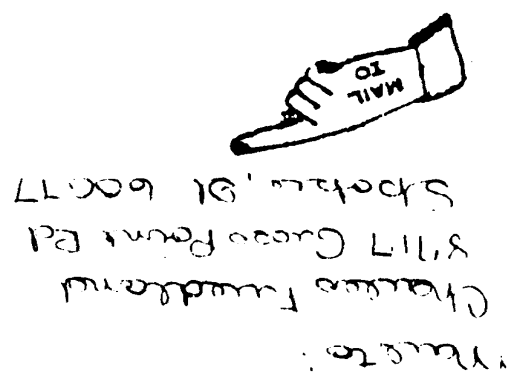 Mail to:
Charles Friedland
Gross Point Rd
Skokie, Il 60077
MAIL
TO